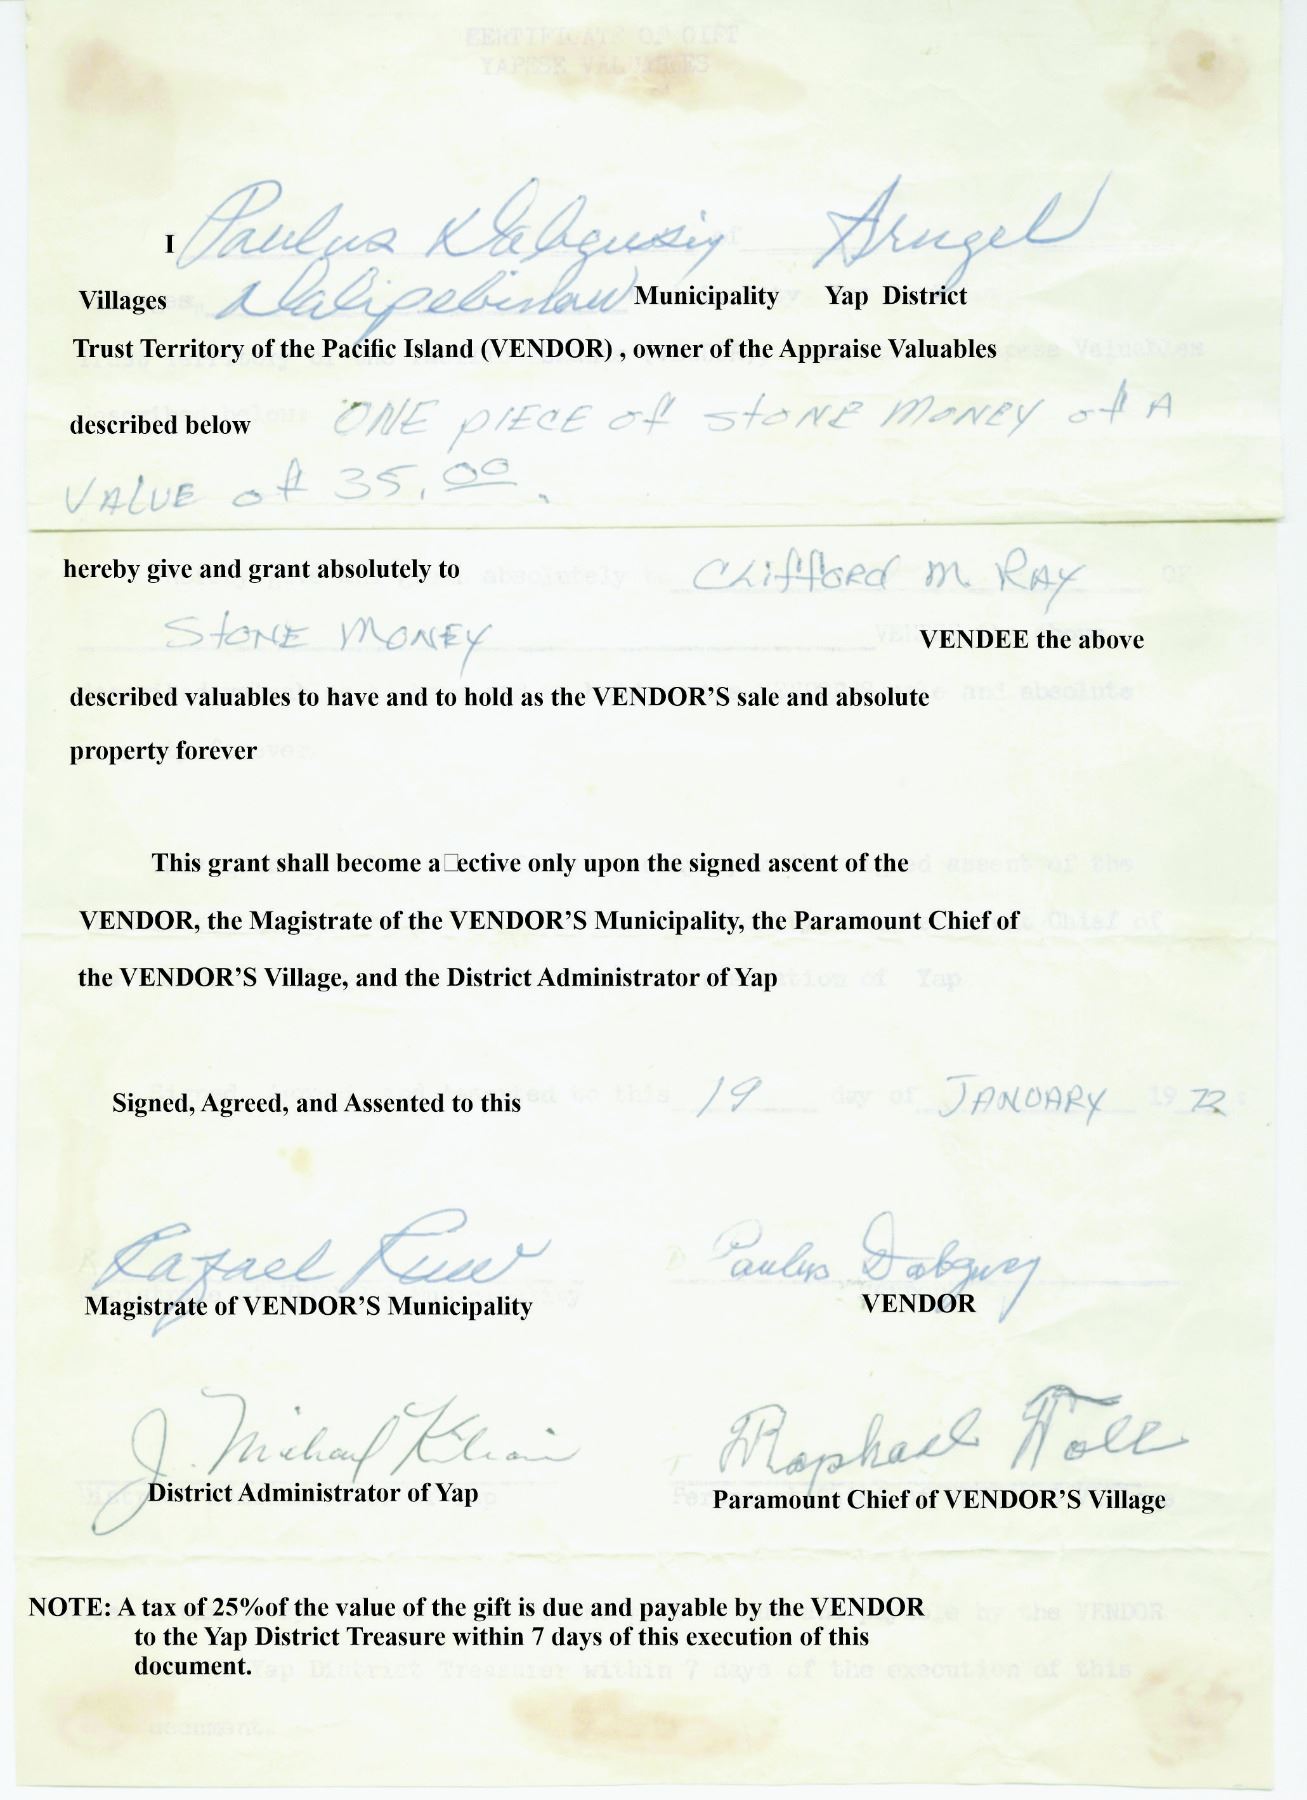 CERTIFICATE OF GIFT
YAPESE VALUABLES
I Paulus of Arugel
Villages Municipality Yap District
Trust Territory of the Pacific Island (VENDOR) , owner of the Appraise Valuables
described below ONE PIECE of StONE MONEY of A
VALUE of 35.00.
hereby give and grant absolutely to Clifford M. RAY OF
StONE MONEY VENDEE the above
described valuables to have and to hold as the VENDOR’S sale and absolute
property forever
This grant shall become a□ective only upon the signed ascent of the
VENDOR, the Magistrate of the VENDOR’S Municipality, the Paramount Chief of
the VENDOR’S Village, and the District Administrator of Yap
Signed, Agreed, and Assented to this 19 day of JANUARY 1972:
Rafael Paulus
Magistrate of VENDOR’S Municipality VENDOR
J. Michael Raphael
District Administrator of Yap Paramount Chief of VENDOR’S Village
NOTE: A tax of 25%of the value of the gift is due and payable by the VENDOR
to the Yap District Treasure within 7 days of this execution of this
document.